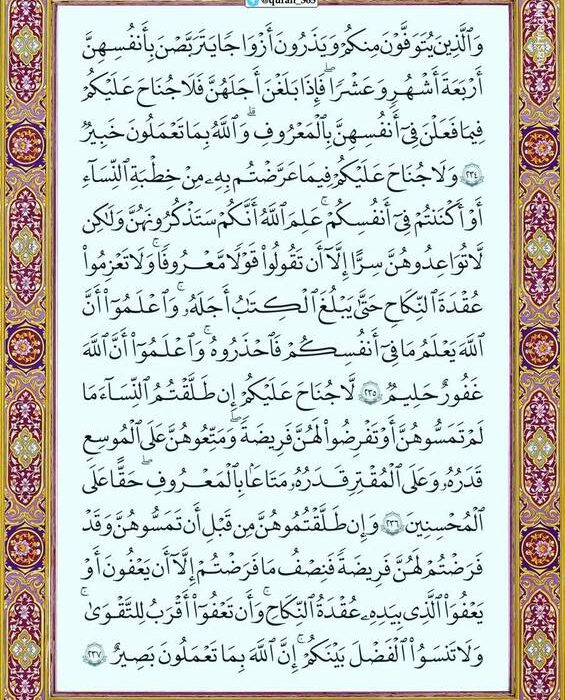 @quran_365
وَالَّذِينَ يُتَوَفَّوْنَ مِنكُمْ وَيَذَرُونَ أَزْوَاجًا يَتَرَبَّصْنَ بِأَنفُسِهِنَّ
أَرْبَعَةَ أَشْهُرٍ وَعَشْرًا ۖ فَإِذَا بَلَغْنَ أَجَلَهُنَّ فَلَا جُنَاحَ عَلَيْكُمْ
فِيمَا فَعَلْنَ فِي أَنفُسِهِنَّ بِالْمَعْرُوفِ ۗ وَاللَّهُ بِمَا تَعْمَلُونَ خَبِيرٌ
٢٣٤ وَلَا جُنَاحَ عَلَيْكُمْ فِيمَا عَرَّضْتُم بِهِۦ مِنْ خِطْبَةِ النِّسَآءِ
أَوْ أَكْنَنتُمْ فِي أَنفُسِكُمْ ۚ عَلِمَ اللَّهُ أَنَّكُمْ سَتَذْكُرُونَهُنَّ وَلَٰكِن
لَّا تُوَاعِدُوهُنَّ سِرًّا إِلَّآ أَن تَقُولُوا۟ قَوْلًا مَّعْرُوفًا ۚ وَلَا تَعْزِمُوا۟
عُقْدَةَ النِّكَاحِ حَتَّىٰ يَبْلُغَ الْكِتَابُ أَجَلَهُۥ ۚ وَاعْلَمُوٓا۟ أَنَّ
اللَّهَ يَعْلَمُ مَا فِىٓ أَنفُسِكُمْ فَاحْذَرُوهُ ۚ وَاعْلَمُوٓا۟ أَنَّ اللَّهَ
غَفُورٌ حَلِيمٌ ٢٣٥ لَّا جُنَاحَ عَلَيْكُمْ إِن طَلَّقْتُمُ النِّسَآءَ مَا
لَمْ تَمَسُّوهُنَّ أَوْ تَفْرِضُوا۟ لَهُنَّ فَرِيضَةً ۚ وَمَتِّعُوهُنَّ عَلَى الْمُوسِعِ
قَدَرُهُۥ وَعَلَى الْمُقْتِرِ قَدَرُهُۥ مَتَاعًۢا بِالْمَعْرُوفِ ۖ حَقًّا عَلَى
الْمُحْسِنِينَ ٢٣٦ وَإِن طَلَّقْتُمُوهُنَّ مِن قَبْلِ أَن تَمَسُّوهُنَّ وَقَدْ
فَرَضْتُمْ لَهُنَّ فَرِيضَةً فَنِصْفُ مَا فَرَضْتُمْ إِلَّآ أَن يَعْفُونَ أَوْ
يَعْفُوَا۟ الَّذِى بِيَدِهِۦ عُقْدَةُ النِّكَاحِ ۚ وَأَن تَعْفُوٓا۟ أَقْرَبُ لِلتَّقْوَىٰ ۚ
وَلَا تَنسَوُا۟ الْفَضْلَ بَيْنَكُمْ ۚ إِنَّ اللَّهَ بِمَا تَعْمَلُونَ بَصِيرٌ ٢٣٧